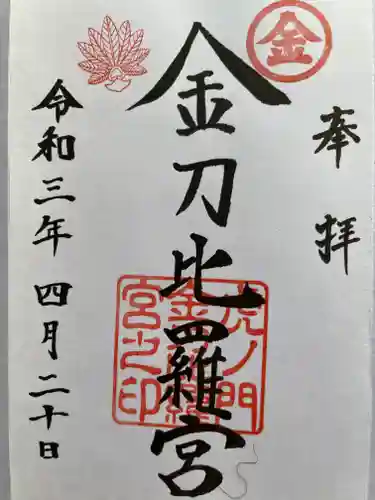 奉拝
金
金刀比羅宮
虎ノ門
金刀比羅
宮之印
令和三年四月二十日